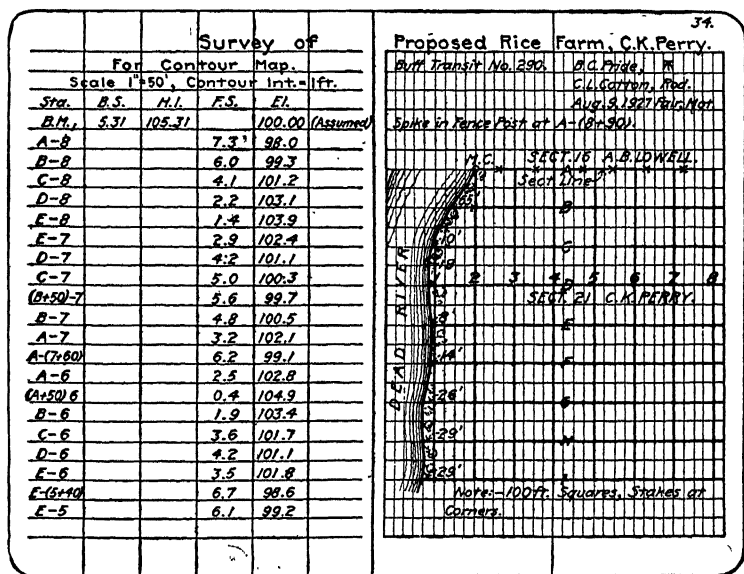 34.
Survey of
For Contour Map.
Scale 1"=50', Contour Int.=1ft.
Sta. B.S. H.I. F.S. El.
B.M., 5.31 105.31 100.00 (Assumed)
A-8 7.3' 98.0
B-8 6.0 99.3
C-8 4.1 101.2
D-8 2.2 103.1
E-8 1.4 103.9
E-7 2.9 102.4
D-7 4.2 101.1
C-7 5.0 100.3
(B+50)-7 5.6 99.7
B-7 4.8 100.5
A-7 3.2 102.1
A-(7+60) 6.2 99.1
A-6 2.5 102.8
(A+50) 6 0.4 104.9
B-6 1.9 103.4
C-6 3.6 101.7
D-6 4.2 101.1
E-6 3.5 101.8
E-(5+40) 6.7 98.6
E-5 6.1 99.2
Proposed Rice Farm, C.K.Perry.
Buff Transit No. 290. B.C. Pride, ⊼
C.L. Cotton, Rod.
Aug. 9, 1927 Fair, Hot
Spike in Fence Post at A-(8+90).
M.C. SECT. 16 A.B. LOWELL.
Sect Line A
65'
B
-10'
C
-18'
2 3 4 D 5 6 7 8
SECT. 21 C.K. PERRY.
DEAD RIVER
-8'
E
-14'
F
-26'
G
-29'
H
-29'
Note:-100ft. Squares, Stakes at
Corners.